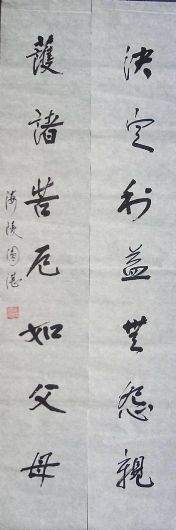 決定利益無怨親
護諸苦厄如父母
海陵圓湛